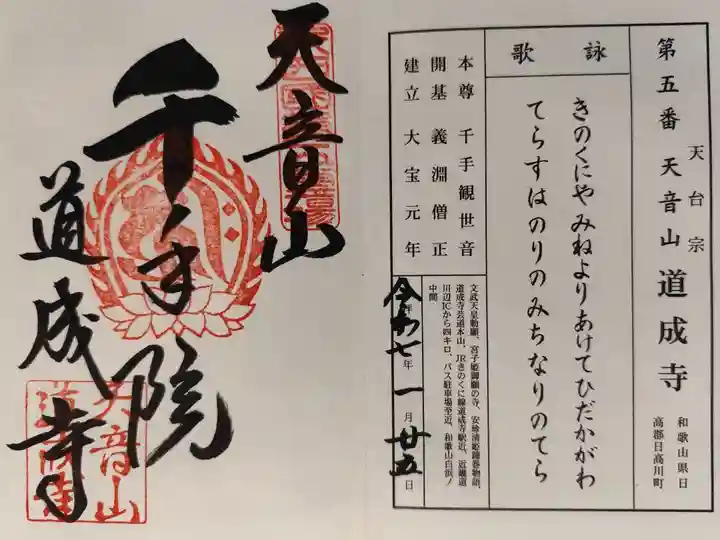 第五番 天台宗 天音山 道成寺
和歌山県日
高郡日高川町
詠歌
きのくにやみねよりあけてひだかがわ
てらすはのりのみちなりのてら
本尊 千手観世音
開基 義淵僧正
建立 大宝元年
文武天皇勅願、宮子姫御願の寺、安珍清姫鐘巻物語、
道成寺芸道本山、JRきのくに線道成寺駅近、近畿道
川辺ICから四キロ、バス駐車場至近、和歌山白浜ノ
中間、
令和七年一月廿五日
天音山
千手院
道成寺
天音山
道成寺